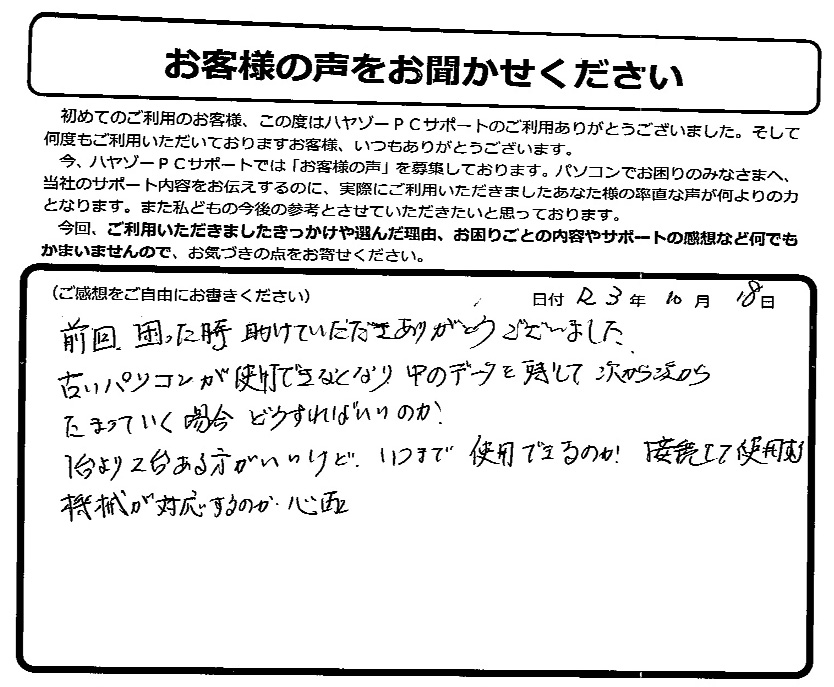 お客様の声をお聞かせください
初めてのご利用のお客様、この度はハヤゾーPCサポートのご利用ありがとうございました。そして
何度もご利用いただいておりますお客様、いつもありがとうございます。
今、ハヤゾーPCサポートでは「お客様の声」を募集しております。パソコンでお困りのみなさまへ、
当社のサポート内容をお伝えするのに、実際にご利用いただきましたあなた様の率直な声が何よりの力
となります。また私どもの今後の参考とさせていただきたいと思っております。
今回、ご利用いただきましたきっかけや選んだ理由、お困りごとの内容やサポートの感想など何でも
かまいませんので、お気づきの点をお寄せください。
(ご感想をご自由にお書きください) 日付 R3年 10月 18日
前回、困った時助けていただきありがとうございました。
古いパソコンが使用できなくなり中のデータを残して次から次から
たまっていく場合どうすればいいのか?
1台より2台ある方がいいけど、いつまで使用できるのか! 接続して使用する
機械が対応するのか心配